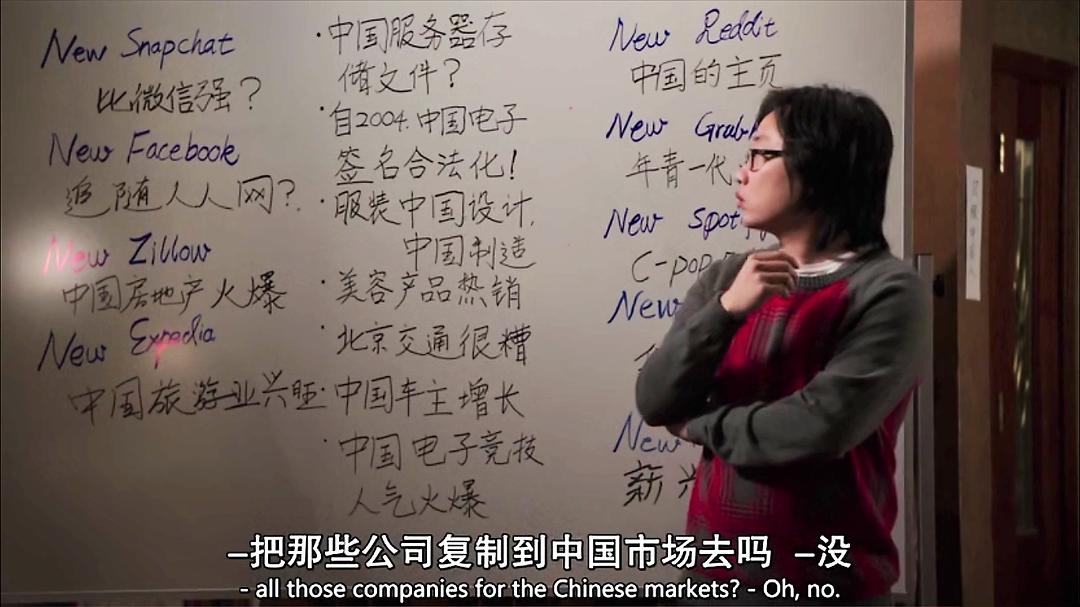 New Snapchat
比微信强？
New Facebook
追随人人网？
New Zillow
中国房地产火爆
New Expedia
中国旅游业兴旺
·中国服务器存
储文件？
·自2004.中国电子
签名合法化！
·服装中国设计,
中国制造
·美容产品热销
·北京交通很糟
·中国车主增长
·中国电子竞技
人气火爆
New Reddit
中国的主页
New
年青一代
New
C-pop
New
New
新兴
-把那些公司复制到中国市场去吗 -没
- all those companies for the Chinese markets? - Oh, no.